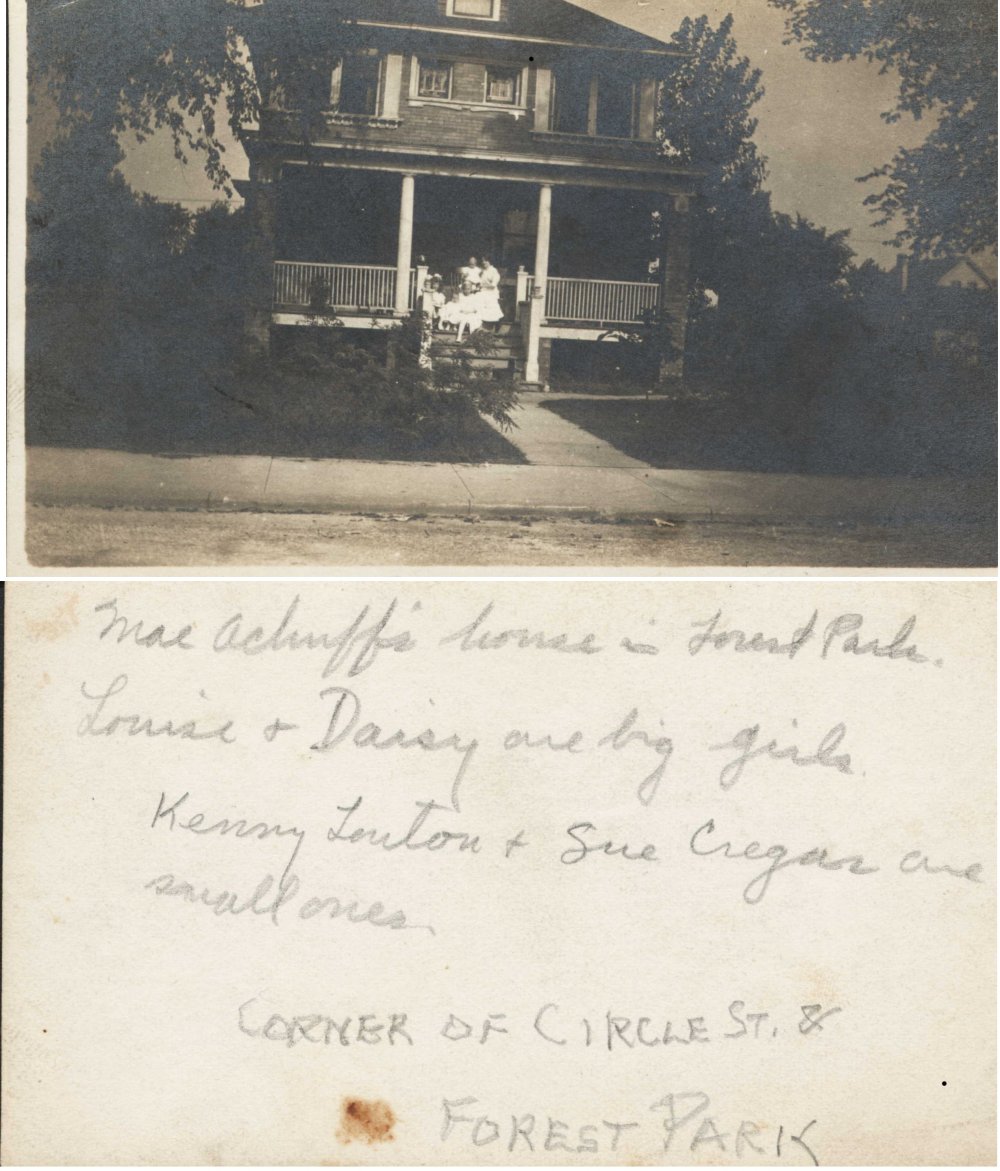 Mae Achuff's house in Forest Park.
Louise + Daisy are big girls.
Kenny Louton + Sue Cregar are
small ones.
CORNER OF CIRCLE ST. &
FOREST PARK